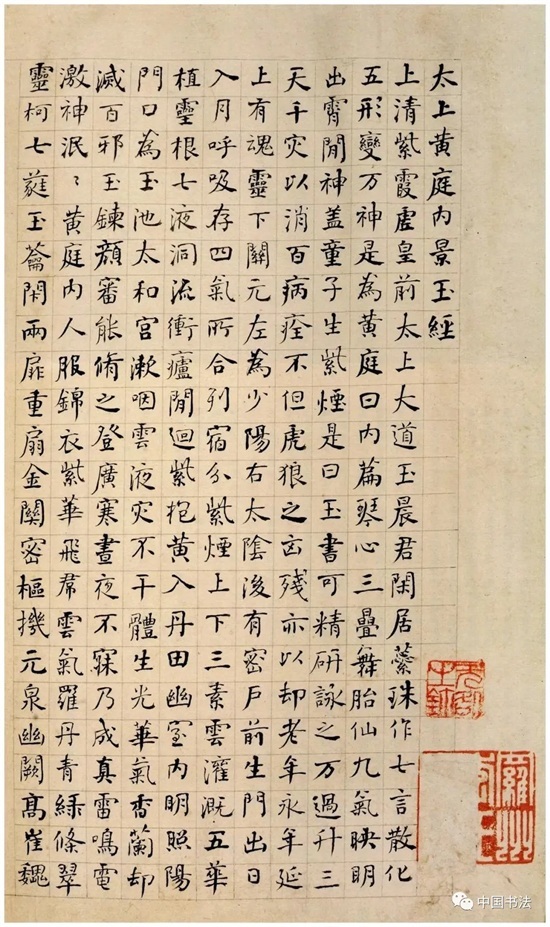 太上黄庭内景玉經
上清紫霞虚皇前太上大道玉晨君閑居蘂珠作七言散化
五形變万神是為黄庭曰内篇琴心三疊舞胎仙九氣映明
出霄閒神盖童子生紫煙是曰玉書可精研詠之万過升三
天千灾以消百病痊不但虎狼之凶殘亦以却老年永年延
上有魂靈下關元左為少陽右太陰後有密戶前生門出日
入月呼吸存四氣所合列宿分紫煙上下三素雲灌溉五華
植靈根七液洞流衝廬閒迴紫抱黄入丹田幽室内明照陽
門口為玉池太和宮漱咽雲液灾不干體生光華氣香蘭却
滅百邪玉鍊顔審能脩之登廣寒晝夜不寐乃成真雷鳴電
激神泯〻黄庭内人服錦衣紫華飛帬雲氣羅丹青緑條翠
靈柯七蕤玉蘥閑兩扉重扇金關密樞機元泉幽闕髙崔巍
中国书法